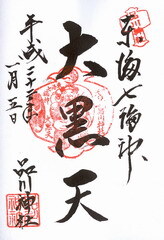 東海七福神
大黒天
平成二十三年
一月五日
品川神社